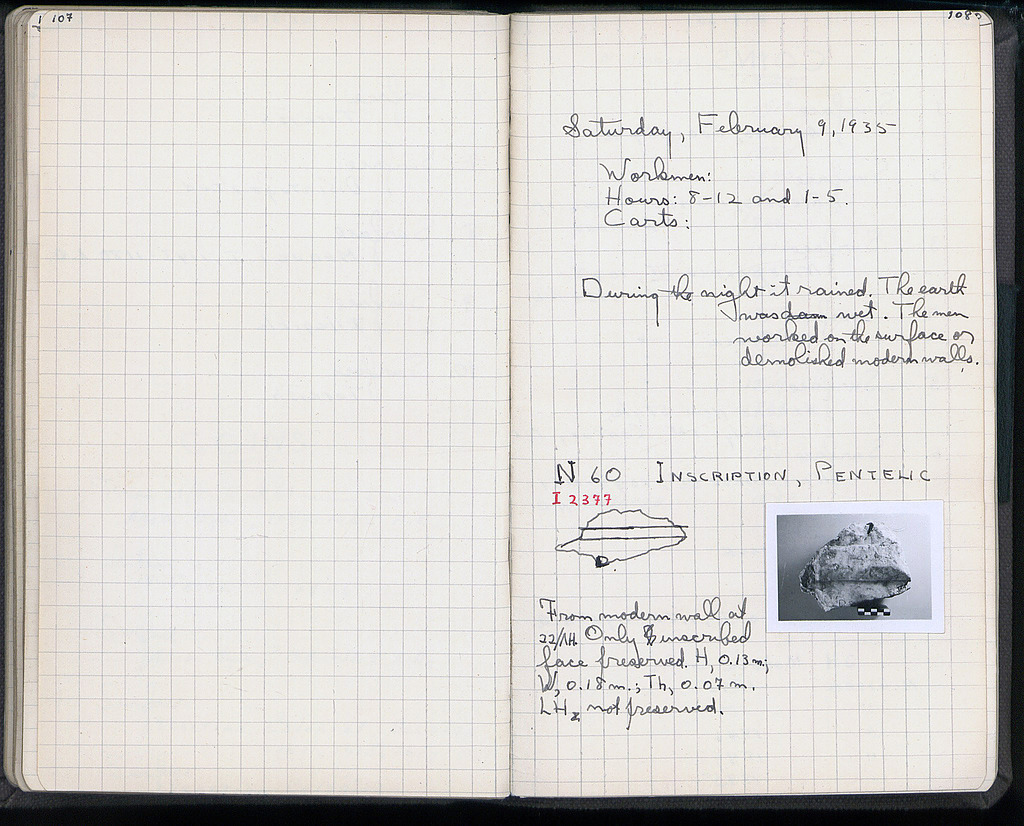 107
1080
Saturday, February 9, 1935
Workmen:
Hours: 8-12 and 1-5.
Carts:
During the night it rained. The earth
was dam wet. The men
worked on the surface or
demolished modern walls.
N 60 INSCRIPTION, PENTELIC
I 2377
From modern wall at
22/ΛΗ. Only inscribed
face preserved. H, 0.13 m.;
W, 0.18 m.; Th, 0.07 m.
LH, not preserved.